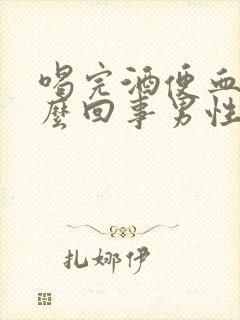 喝完酒便血
麼回事男性
扎娜伊